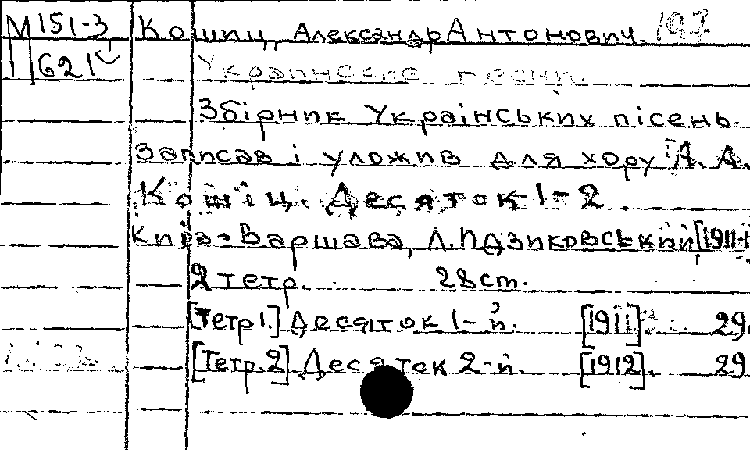 М 151-3 Кошиц, Александр Антонович. 197
II 621 Украинские песни.
Збірник Українських пісень.
Записав і уложив для хору А. А.
Кошіц. Десяток 1-2.
Київ-Варшава, Л. Ідзиковський [1911-1
2 тетр. 28 ст.
[Тетр 1.] Десяток 1-й. [1911]. 29
[Тетр. 2] Десяток 2-й. [1912]. 29